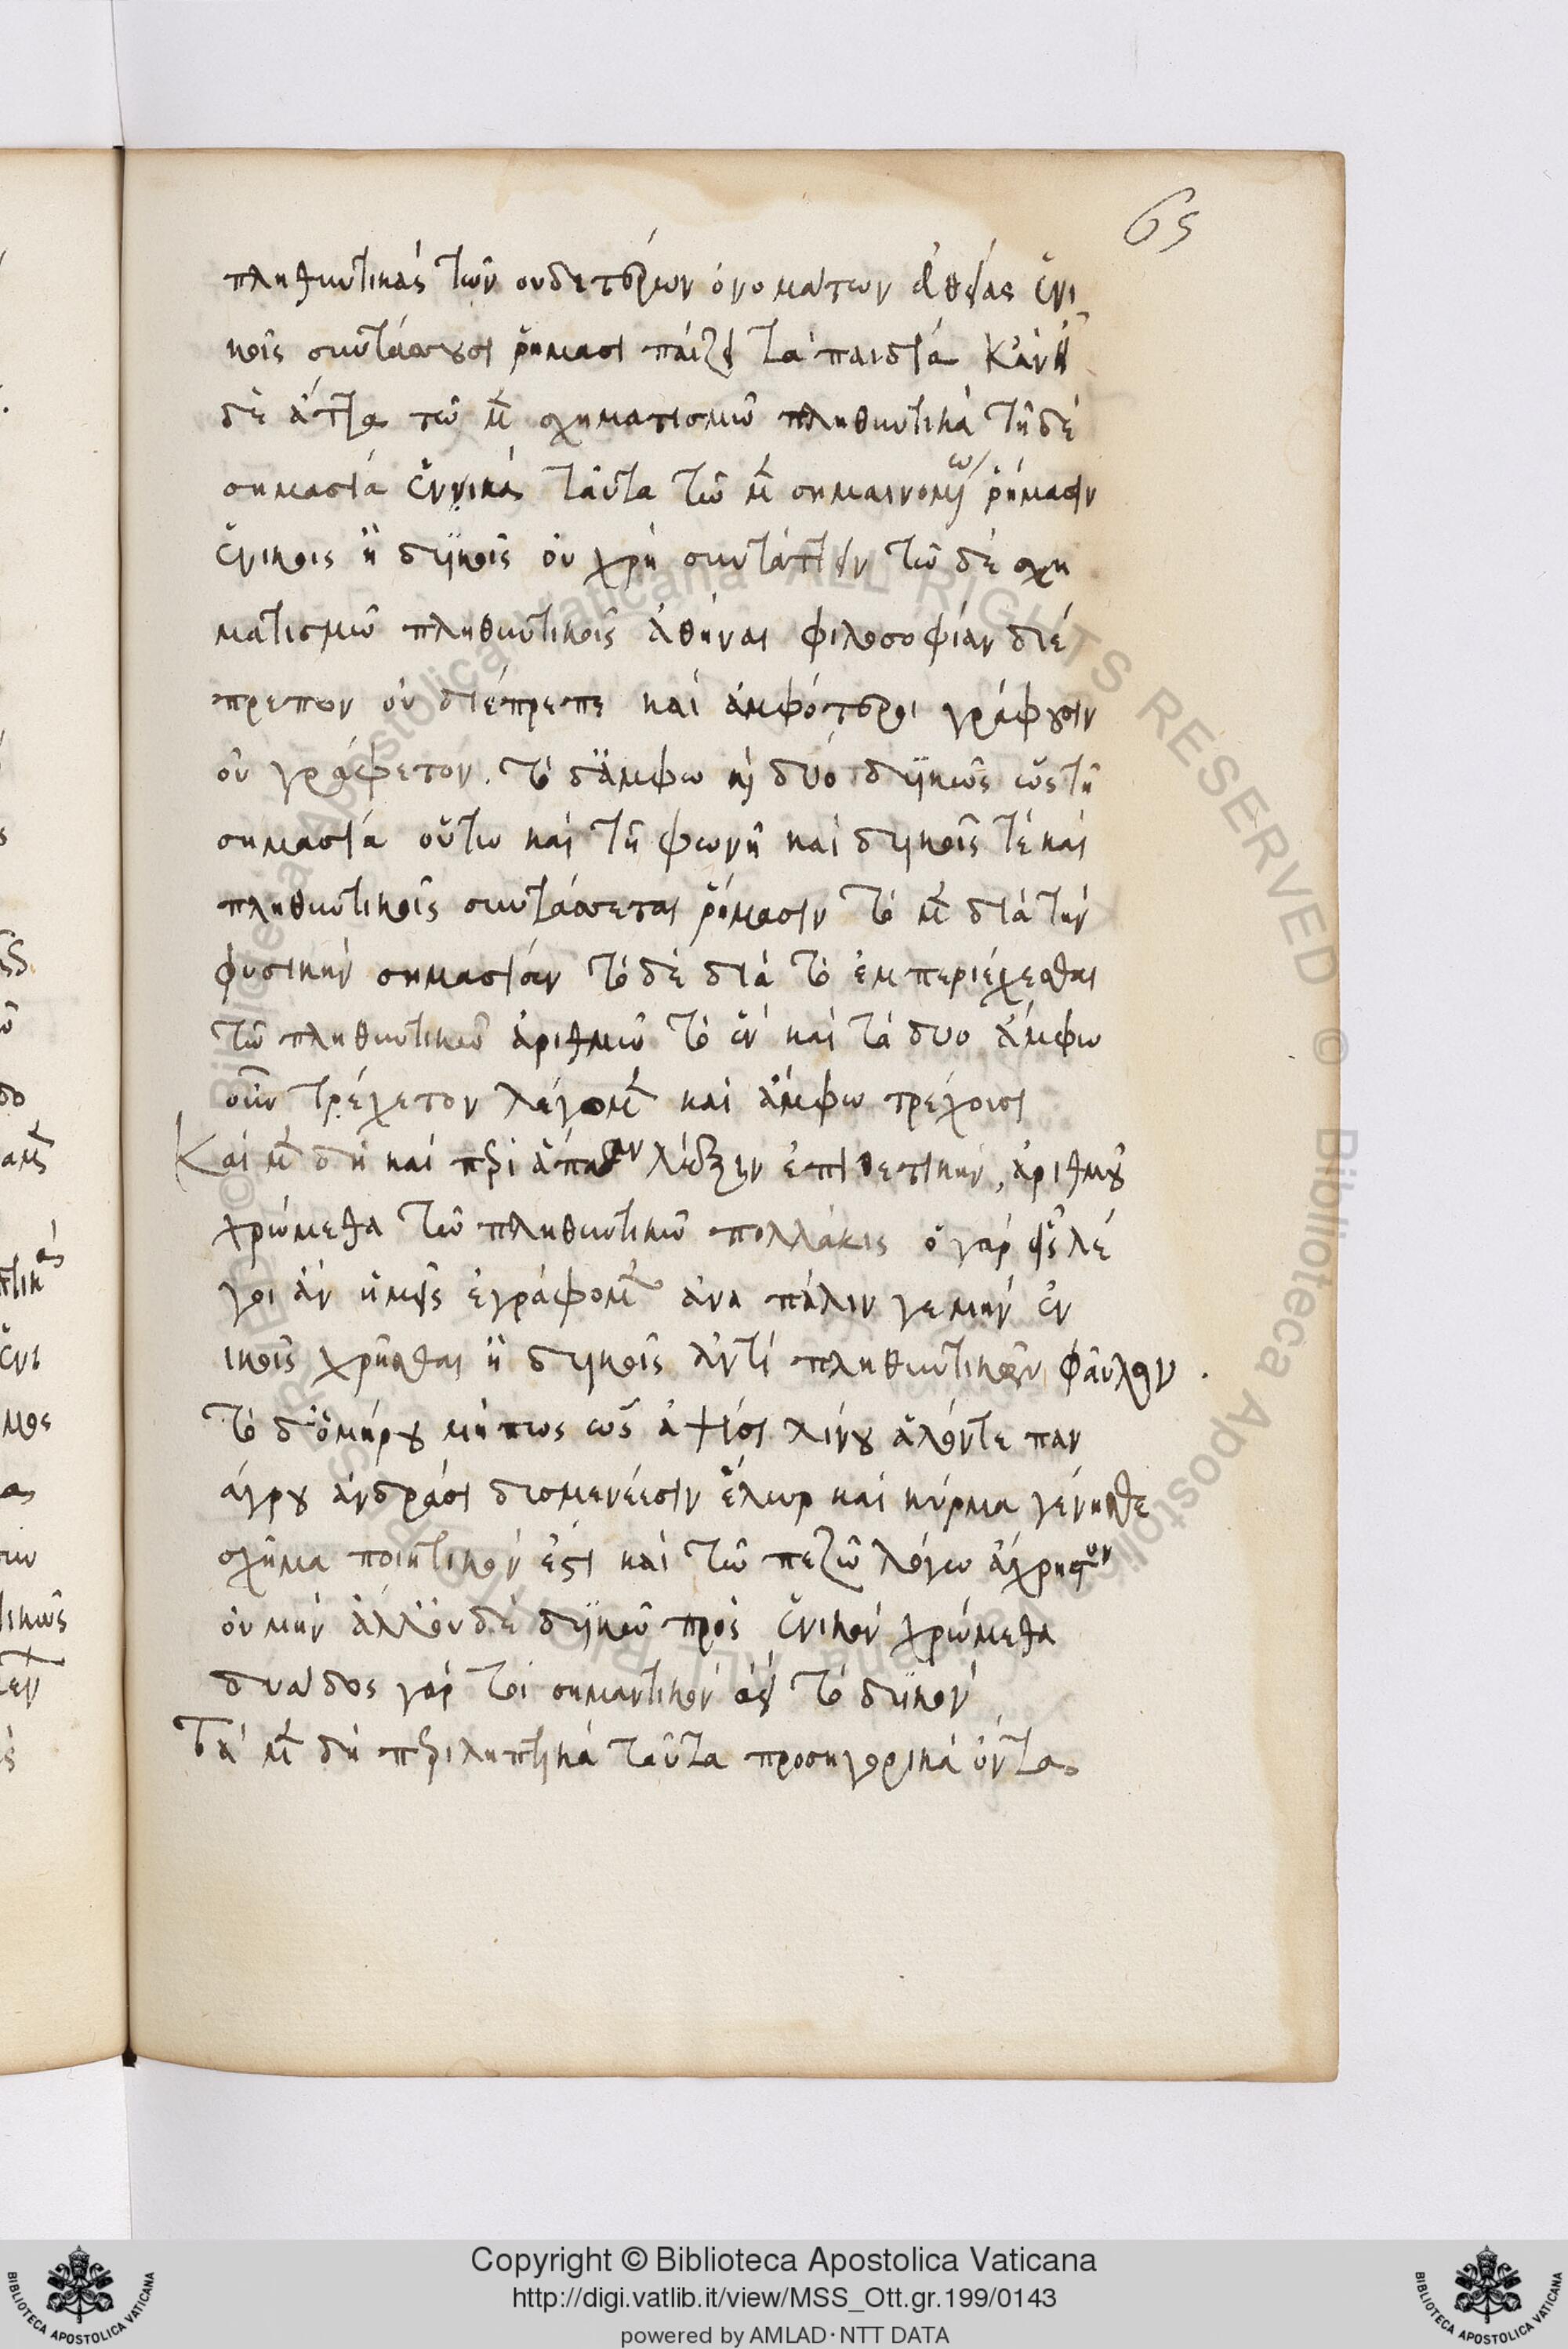 65
πληθυντικὰς τῶν οὐδετέρων ὀνομάτων εὐθείας ἑνι
κοῖς συντάσσουσι ῥήμασι παίζει τὰ παιδία κἀν ᾖ
δὲ ἄττα τῶ μὲν σχηματισμῶ πληθυντικὰ τῆ δὲ
σημασία ἑνικὰ ταῦτα τῶ μὲν σημαινομένω ῥήμασιν
ἑνικοῖς ἢ δυϊκοῖς οὐ χρὴ συντάττειν τῶ δὲ σχη
ματισμῶ πληθυντικοῖς ἀθῆναι φιλοσοφίαν διέ
πρεπον οὐ διέπρεπε καὶ ἀμφότεροι γράφουσιν
οὐ γράφετον. τὸ δ' ἄμφω καὶ δύο δυϊκῶς ὡς τῆ
σημασία οὕτω καὶ τῆ φωνῆ καὶ δυϊκοῖς τὲ καὶ
πληθυντικοῖς συντάσσεται ῥήμασιν τὸ μὲν διὰ τὴν
φυσικὴν σημασίαν τὸ δὲ διὰ τὸ ἐμπεριέχεσθαι
τῶ πληθυντικῶ ἀριθμῶ τὸ ἓν καὶ τὰ δύο ἄμφω
οὖν τρέχετον λέγομεν καὶ ἄμφω τρέχουσι
Καὶ μὲν δὴ καὶ περὶ ἅπασαν λέξιν ἐπιθετικὴν, ἀριθμοῦ
χρώμεθα τῶ πληθυντικῶ πολλάκις ὁ γὰρ εἷς λέ
γοι ἂν ἡμεῖς ἐγράφομεν ἀνα πάλιν γε μὴν ἑν
ικοῖς χρῆσθαι ἢ δυϊκοῖς ἀντὶ πληθυντικῶν φαῦλον.
τὸ δ' ὁμήρου μήπως ὡς ἀψῖσι λίνου ἁλόντε παν
άγρου ἀνδράσι δυσμενέεσιν ἕλωρ καὶ κύρμα γένησθε
σχῆμα ποιητικὸν ἐστι καὶ τῶ πεζῶ λόγω ἄχρηστον
οὐ μὴν ἀλλ' οὐδὲ δυϊκῶ πρὸς ἑνικὸν χρώμεθα
δυάδος γάρ τοι σημαντικὸν ἀεὶ τὸ δυϊκὸν
Τὰ μὲν δὴ περιληπτικὰ ταῦτα προσηγορικὰ ὄντα
Copyright © Biblioteca Apostolica Vaticana
http://digi.vatlib.it/view/MSS_Ott.gr.199/0143
powered by AMLAD·NTT DATA